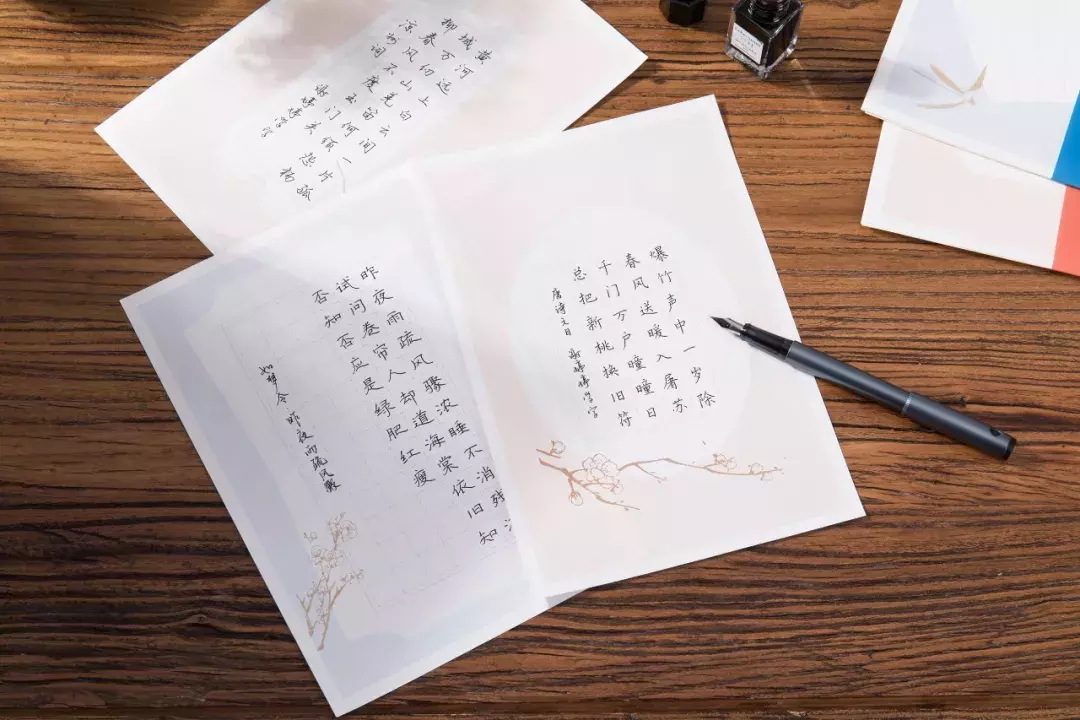 黄河远上白云间一片
城万仞山羌笛何须怨杨
柳春风不度玉门关
昨夜雨疏风骤浓睡不消残
试问卷帘人却道海棠依旧知
否知否应是绿肥红瘦
如梦令 昨夜雨疏风骤
爆竹声中一岁除
春风送暖入屠苏
千门万户瞳瞳日
总把新桃换旧符
唐诗元日